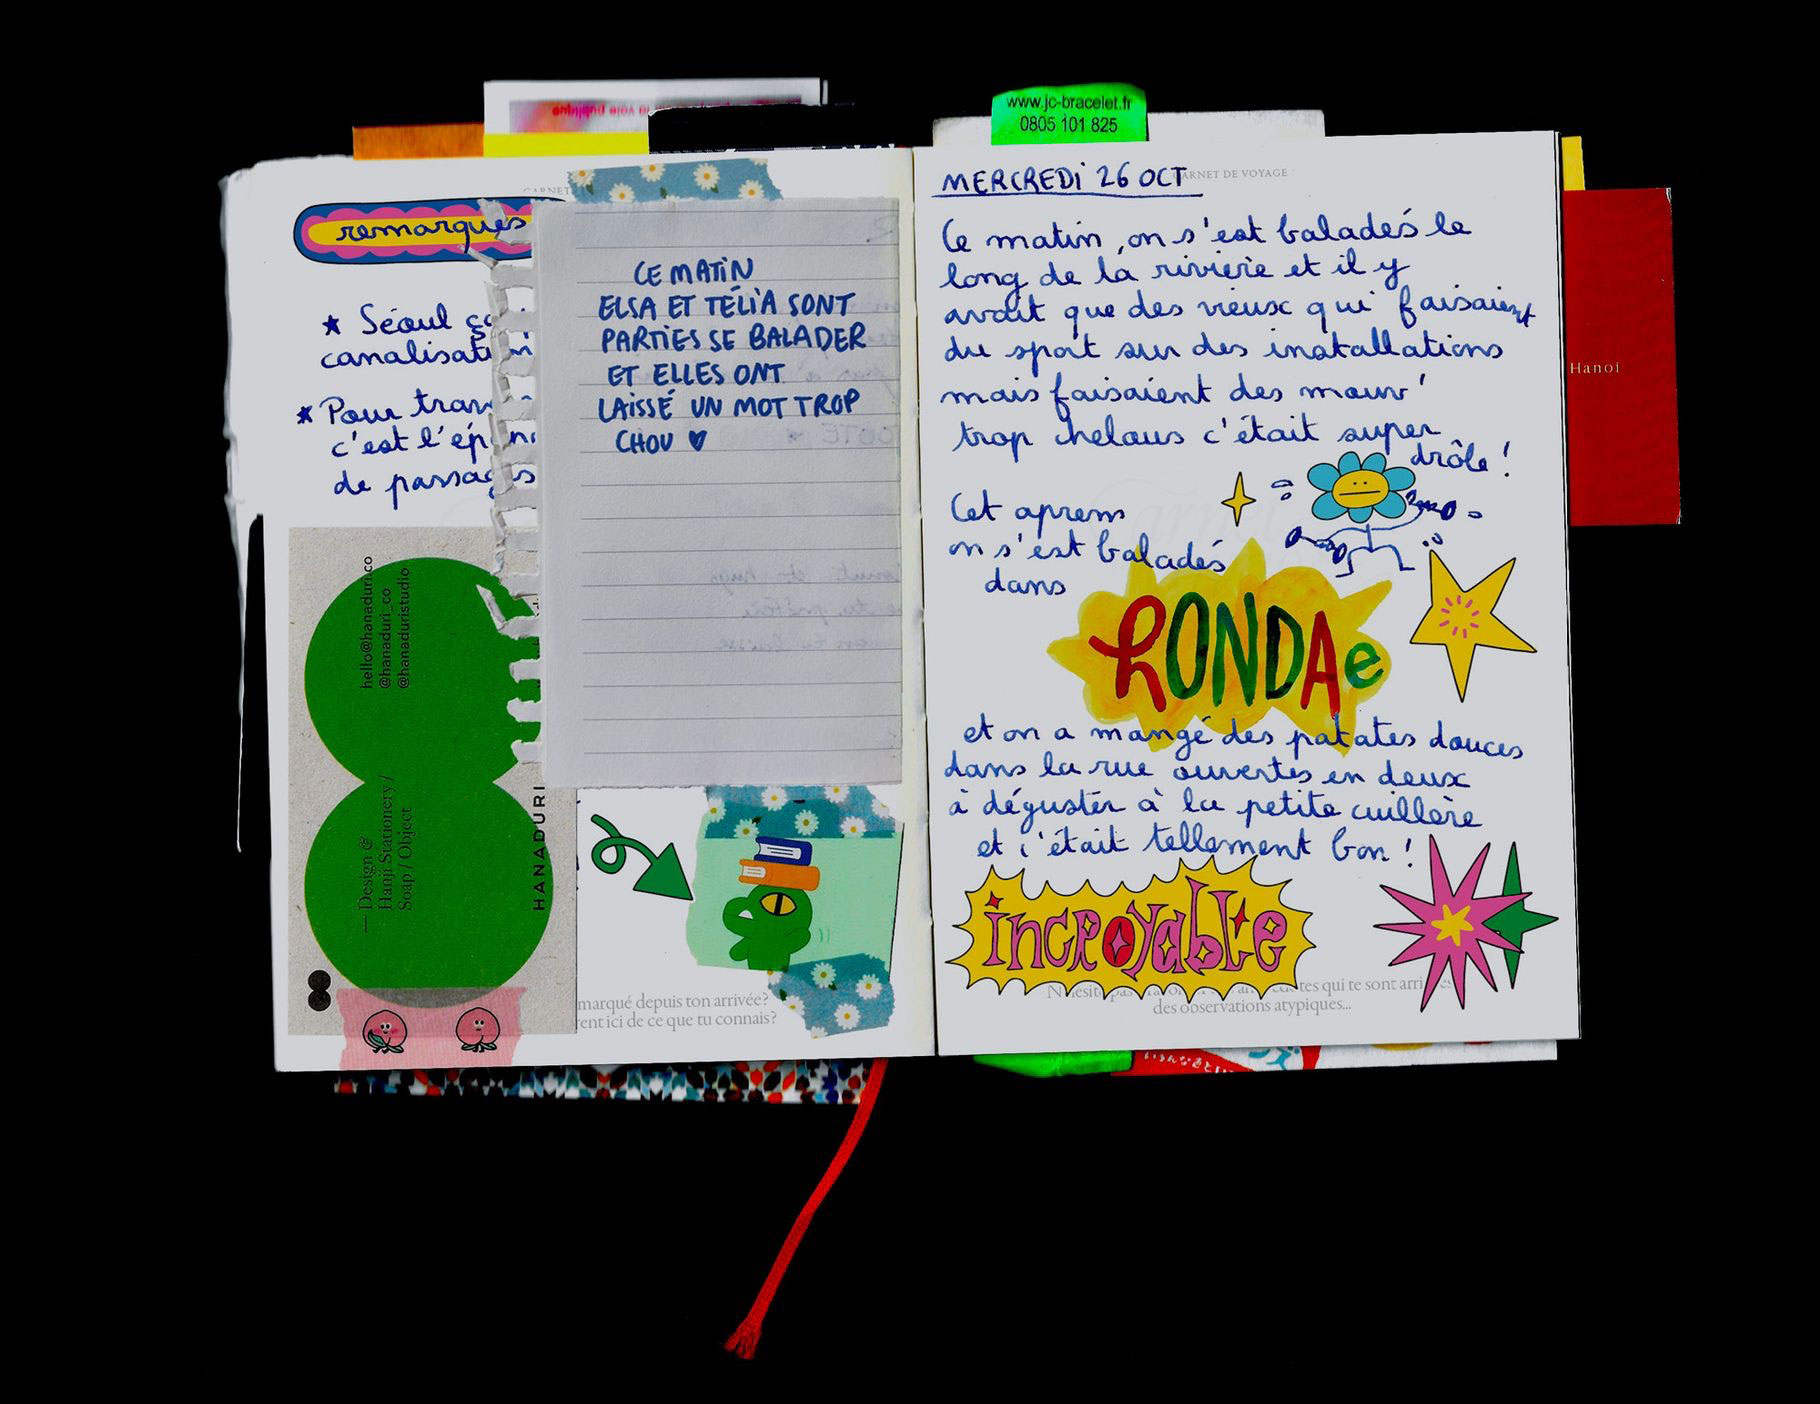 www.jc-bracelet.fr
0805 101 825
la voie publique
CARNET
remarques
★ Séoul
canalisati
★ Pour
c'est l'ép
de passages
CE MATIN
ELSA ET TÉLIA SONT
PARTIES SE BALADER
ET ELLES ONT
LAISSÉ UN MOT TROP
CHOU ♥
hello@hanaduri.co
@hanaduri_co
@hanaduristudio
— Design &
Hanji Stationery /
Soap / Object
HANADURI
marqué depuis ton arrivée?
rent ici de ce que tu connais?
CARNET DE VOYAGE
MERCREDI 26 OCT
Ce matin, on s'est baladés le
long de la rivière et il y
avait que des vieux qui faisaient
du sport sur des installations
mais faisaient des mouv'
trop chelous c'était super
drôle !
Cet aprem
on s'est baladés
dans
HONDAe
et on a mangé des patates douces
dans la rue ouvertes en deux
à déguster à la petite cuillère
et c'était tellement bon !
incroyable
tes qui te sont arri
des observations atypiques...
Hanoi